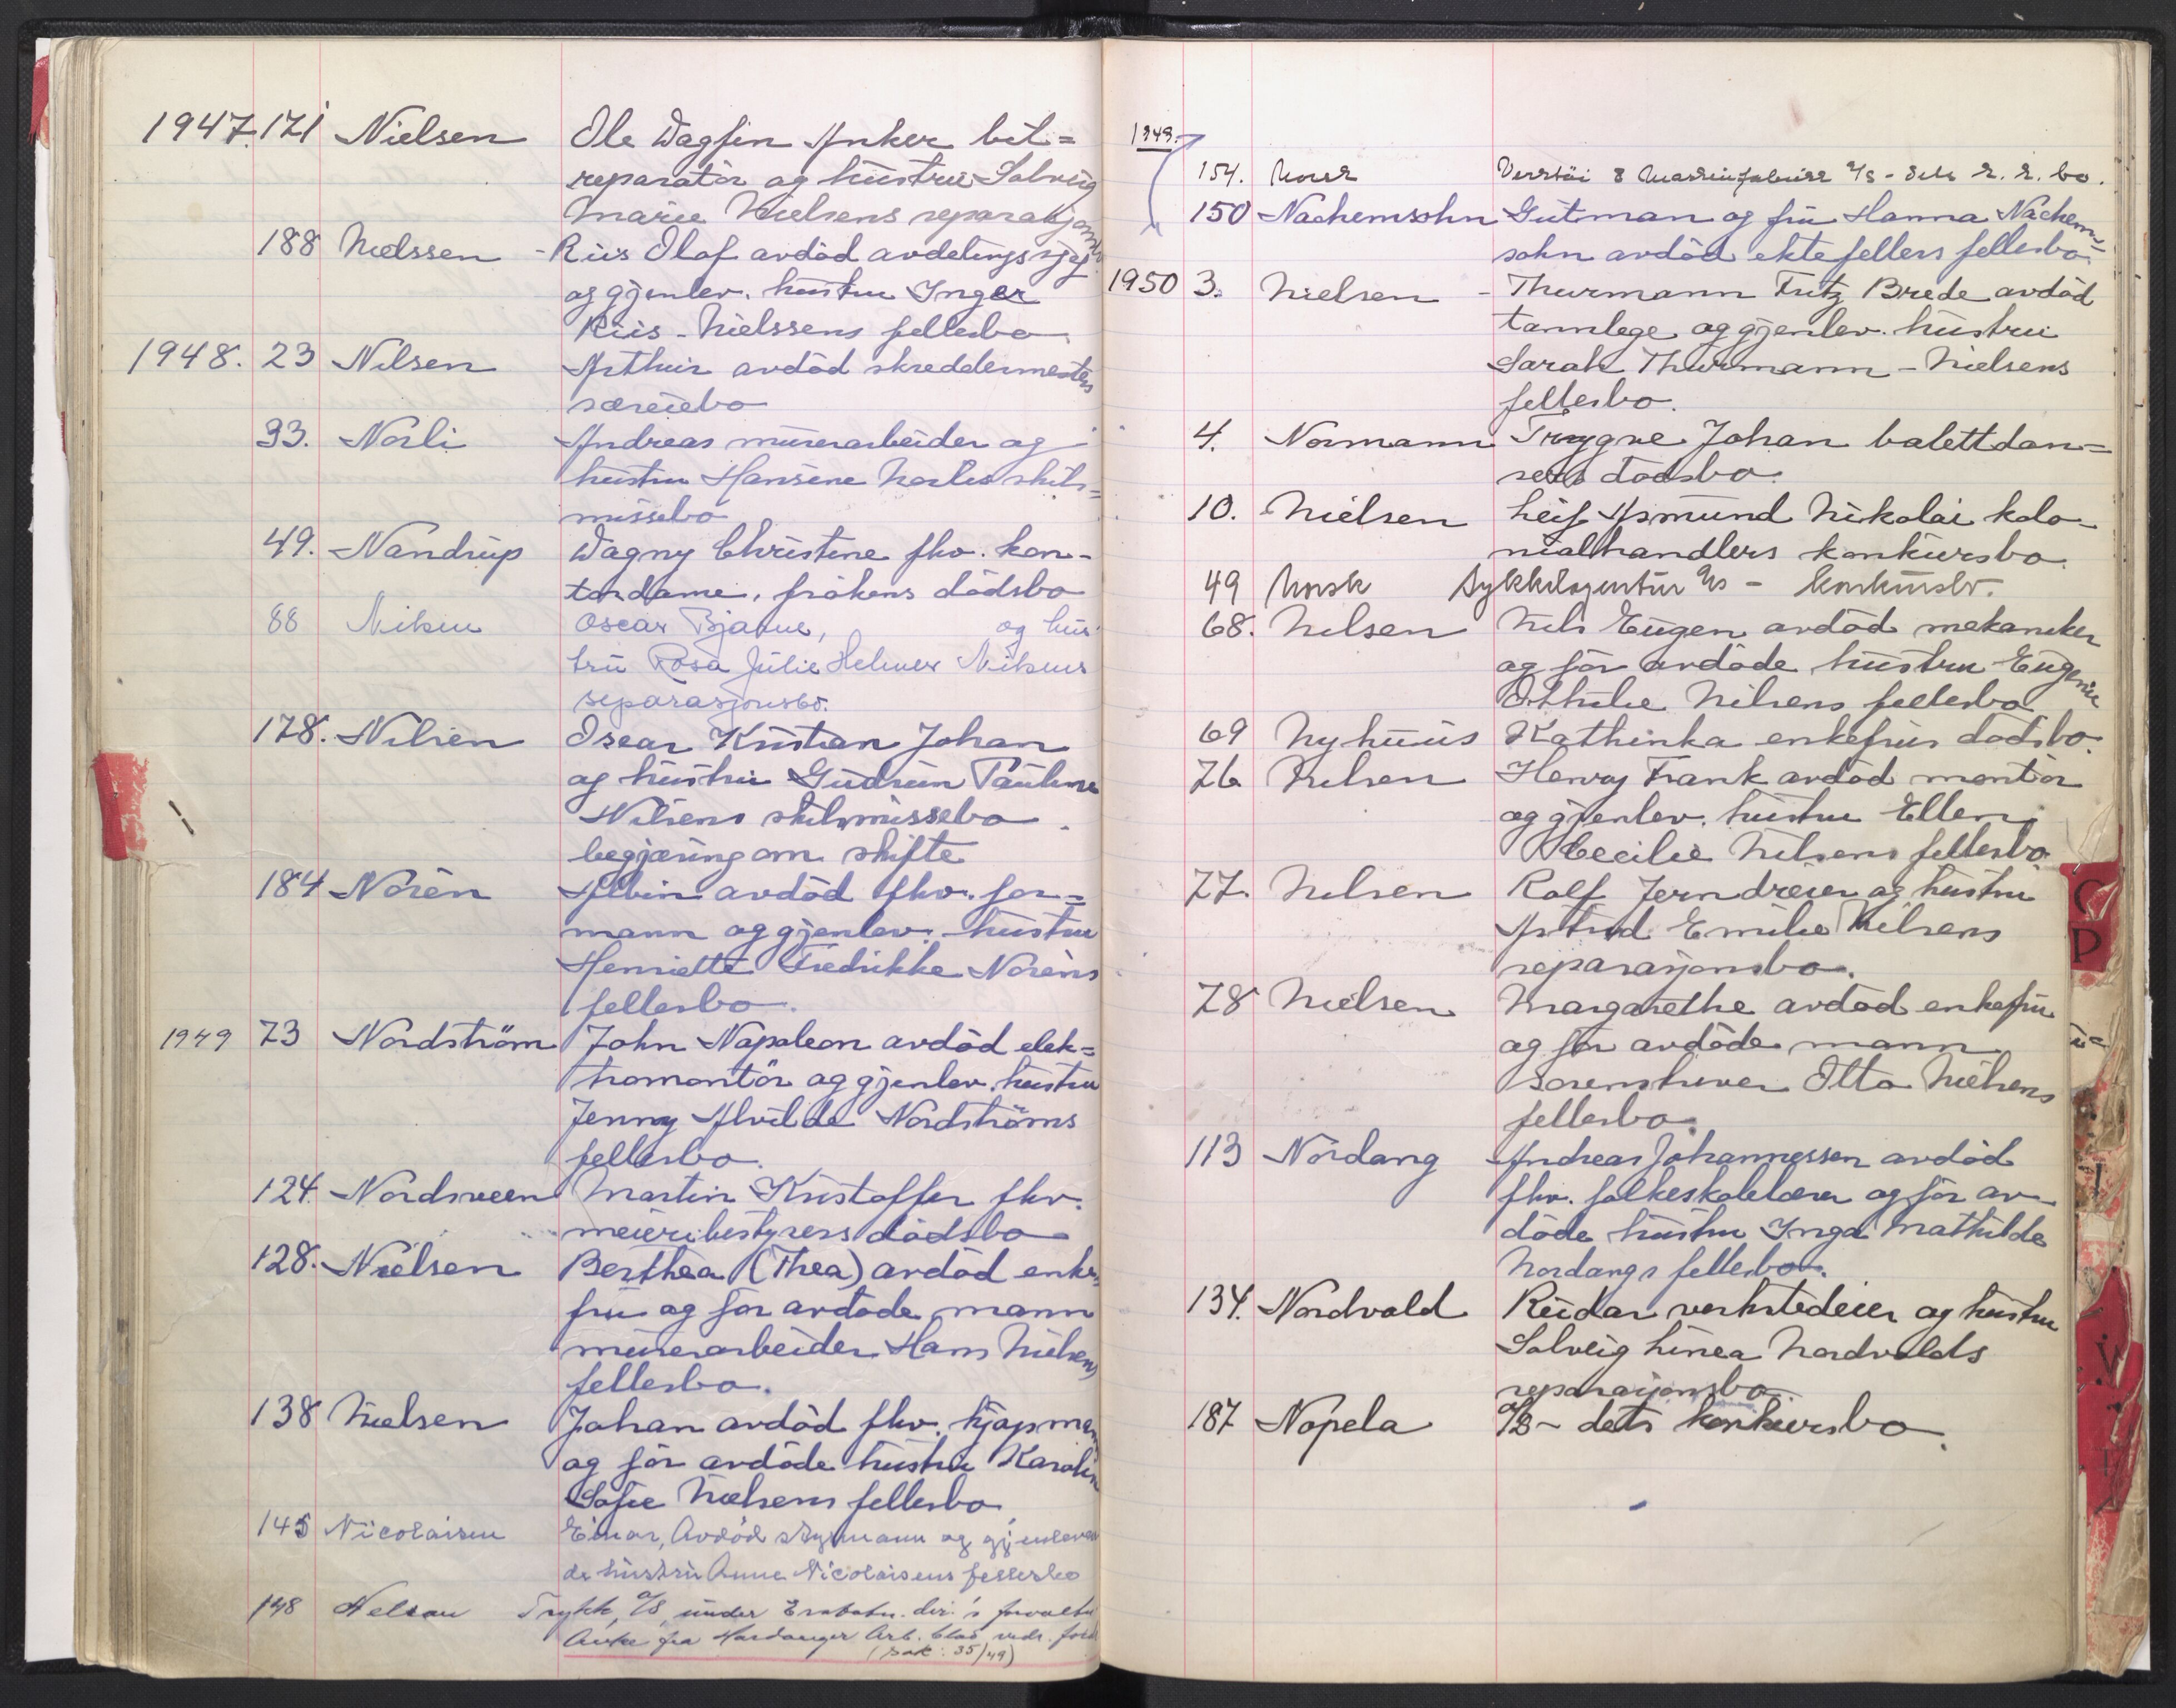 1947. 171 Nielsen Ole Dagfin Anker bil=
reparatör og hustru Solveig
Marie Nielsens separasjonsbo
188 Nielssen - Riis Olaf avdöd avdelingssjef
og gjenlev. hustru Inger
Riis-Nielssens fellesbo
1948. 23 Nilsen Arthur avdöd skreddermesters
særeiebo
33. Norli Andreas murerarbeider og
hustru Hansine Norlis skils=
missebo
49. Nandrup Dagny Christine fhv. kon-
tordame, frökens dödsbo
88 Oscar Bjarne, og hus
tru Rosa Julie
separasjonsbo.
178. Nilsen Oscar Kristian Johan
og hustru Gudrun Pauline
Nilsens skilsmissebo.
begjæring om skifte
184 Norèn Albin avdöd fhv. for=
mann og gjenlev. hustru
Henriette Fredrikke Norèns
fellesbo.
1949 73 Nordström John Napoleon avdöd elek=
tromontör og gjenlev. hustru
Jenny Alvilde Nordströms
fellesbo.
124. Nordsveen Martin Kristoffer fhv.
meieribestyrers dödsbo
128. Nielsen Berthea (Thea) avdöd enke-
fru og för avdöde mann
murerarbeider Hans Nielsens
fellesbo.
138 Nielsen Johan avdöd fhv. kjöpmann
og för avdöde hustru Karoline
Sofie Nielsens fellesbo
145 Nicolaisen Einar, Avdöd styrmann og gjenleven
de hustru Anna Nicolaisens fellesbo
148 Trykk, A/S, under
Anke fra Hardanger Arb. blad vedr.
(sak: 35/49)
1949.
154. Norsk Verktöi & Maskinfabrikk A/S - dets k. k. bo.
150 Nachemsohn Gutman og fru Hanna Nachem=
sohn avdöd ektefellers fellesbo.
1950 3. Nielsen - Thurmann Fritz Brede avdöd
tannlege og gjenlev. hustru
Sarah Thurmann-Nielsens
fellesbo.
4. Normann Trygve Johan balettdan=
sers dödsbo.
10. Nielsen Leif Asmund Nikolai kolo-
nialhandlers konkursbo
49 Norsk Sykkelagentur A/s - konkursbo.
68. Nilsen Nils Eugen avdöd mekaniker
og för avdöde hustru Eugenie
Othilie Nilsens fellesbo
69 Nyhuus Kathinka enkefrus dödsbo.
76 Nilsen Henry Frank avdöd montör
og gjenlev. hustru Ellen
Cecilie Nilsens fellesbo
77. Nilsen Rolf Jerndreier og hustru
Astrid Emilie Nilsens
separasjonsbo.
78 Nielsen Margarethe avdöd enkefru
og för avdöde mann
sorenskriver Otto Nielsens
fellesbo.
113 Nordang Andreas Johannessen avdöd
fhv. folkeskolelærer og för av-
döde hustru Inga Mathilde
Nordangs fellesbo.
134. Nordvold Reidar verkstedeier og hustru
Solveig Linea Nordvolds
separasjonsbo
187 Nopela A/S - dets konkursbo.
C
P